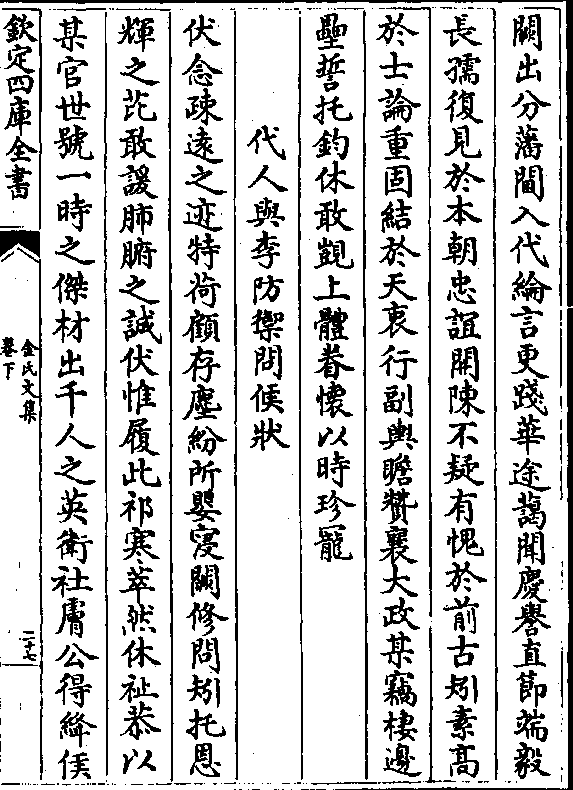 闕出分藩閫入代綸言更踐華途藹聞慶譽直節端毅
長孺復見於本朝忠誼開陳不疑有愧於前古矧素高
於士論重固結於天衷行副輿瞻贊襄大政某竊棲邊
壘誓托鈞休敢覬上體眷懷以時珍寵
代人與李防禦問候狀
伏念疎遠之迹特荷顧存塵紛所嬰寖闕修問矧托恩
輝之芘敢諼肺腑之誠伏惟履此祁寒萃然休祉恭以
某官世號一時之傑材出千人之英衛社膚公得絳侯
欽定四庫全書
金氏文集
卷下
二十七